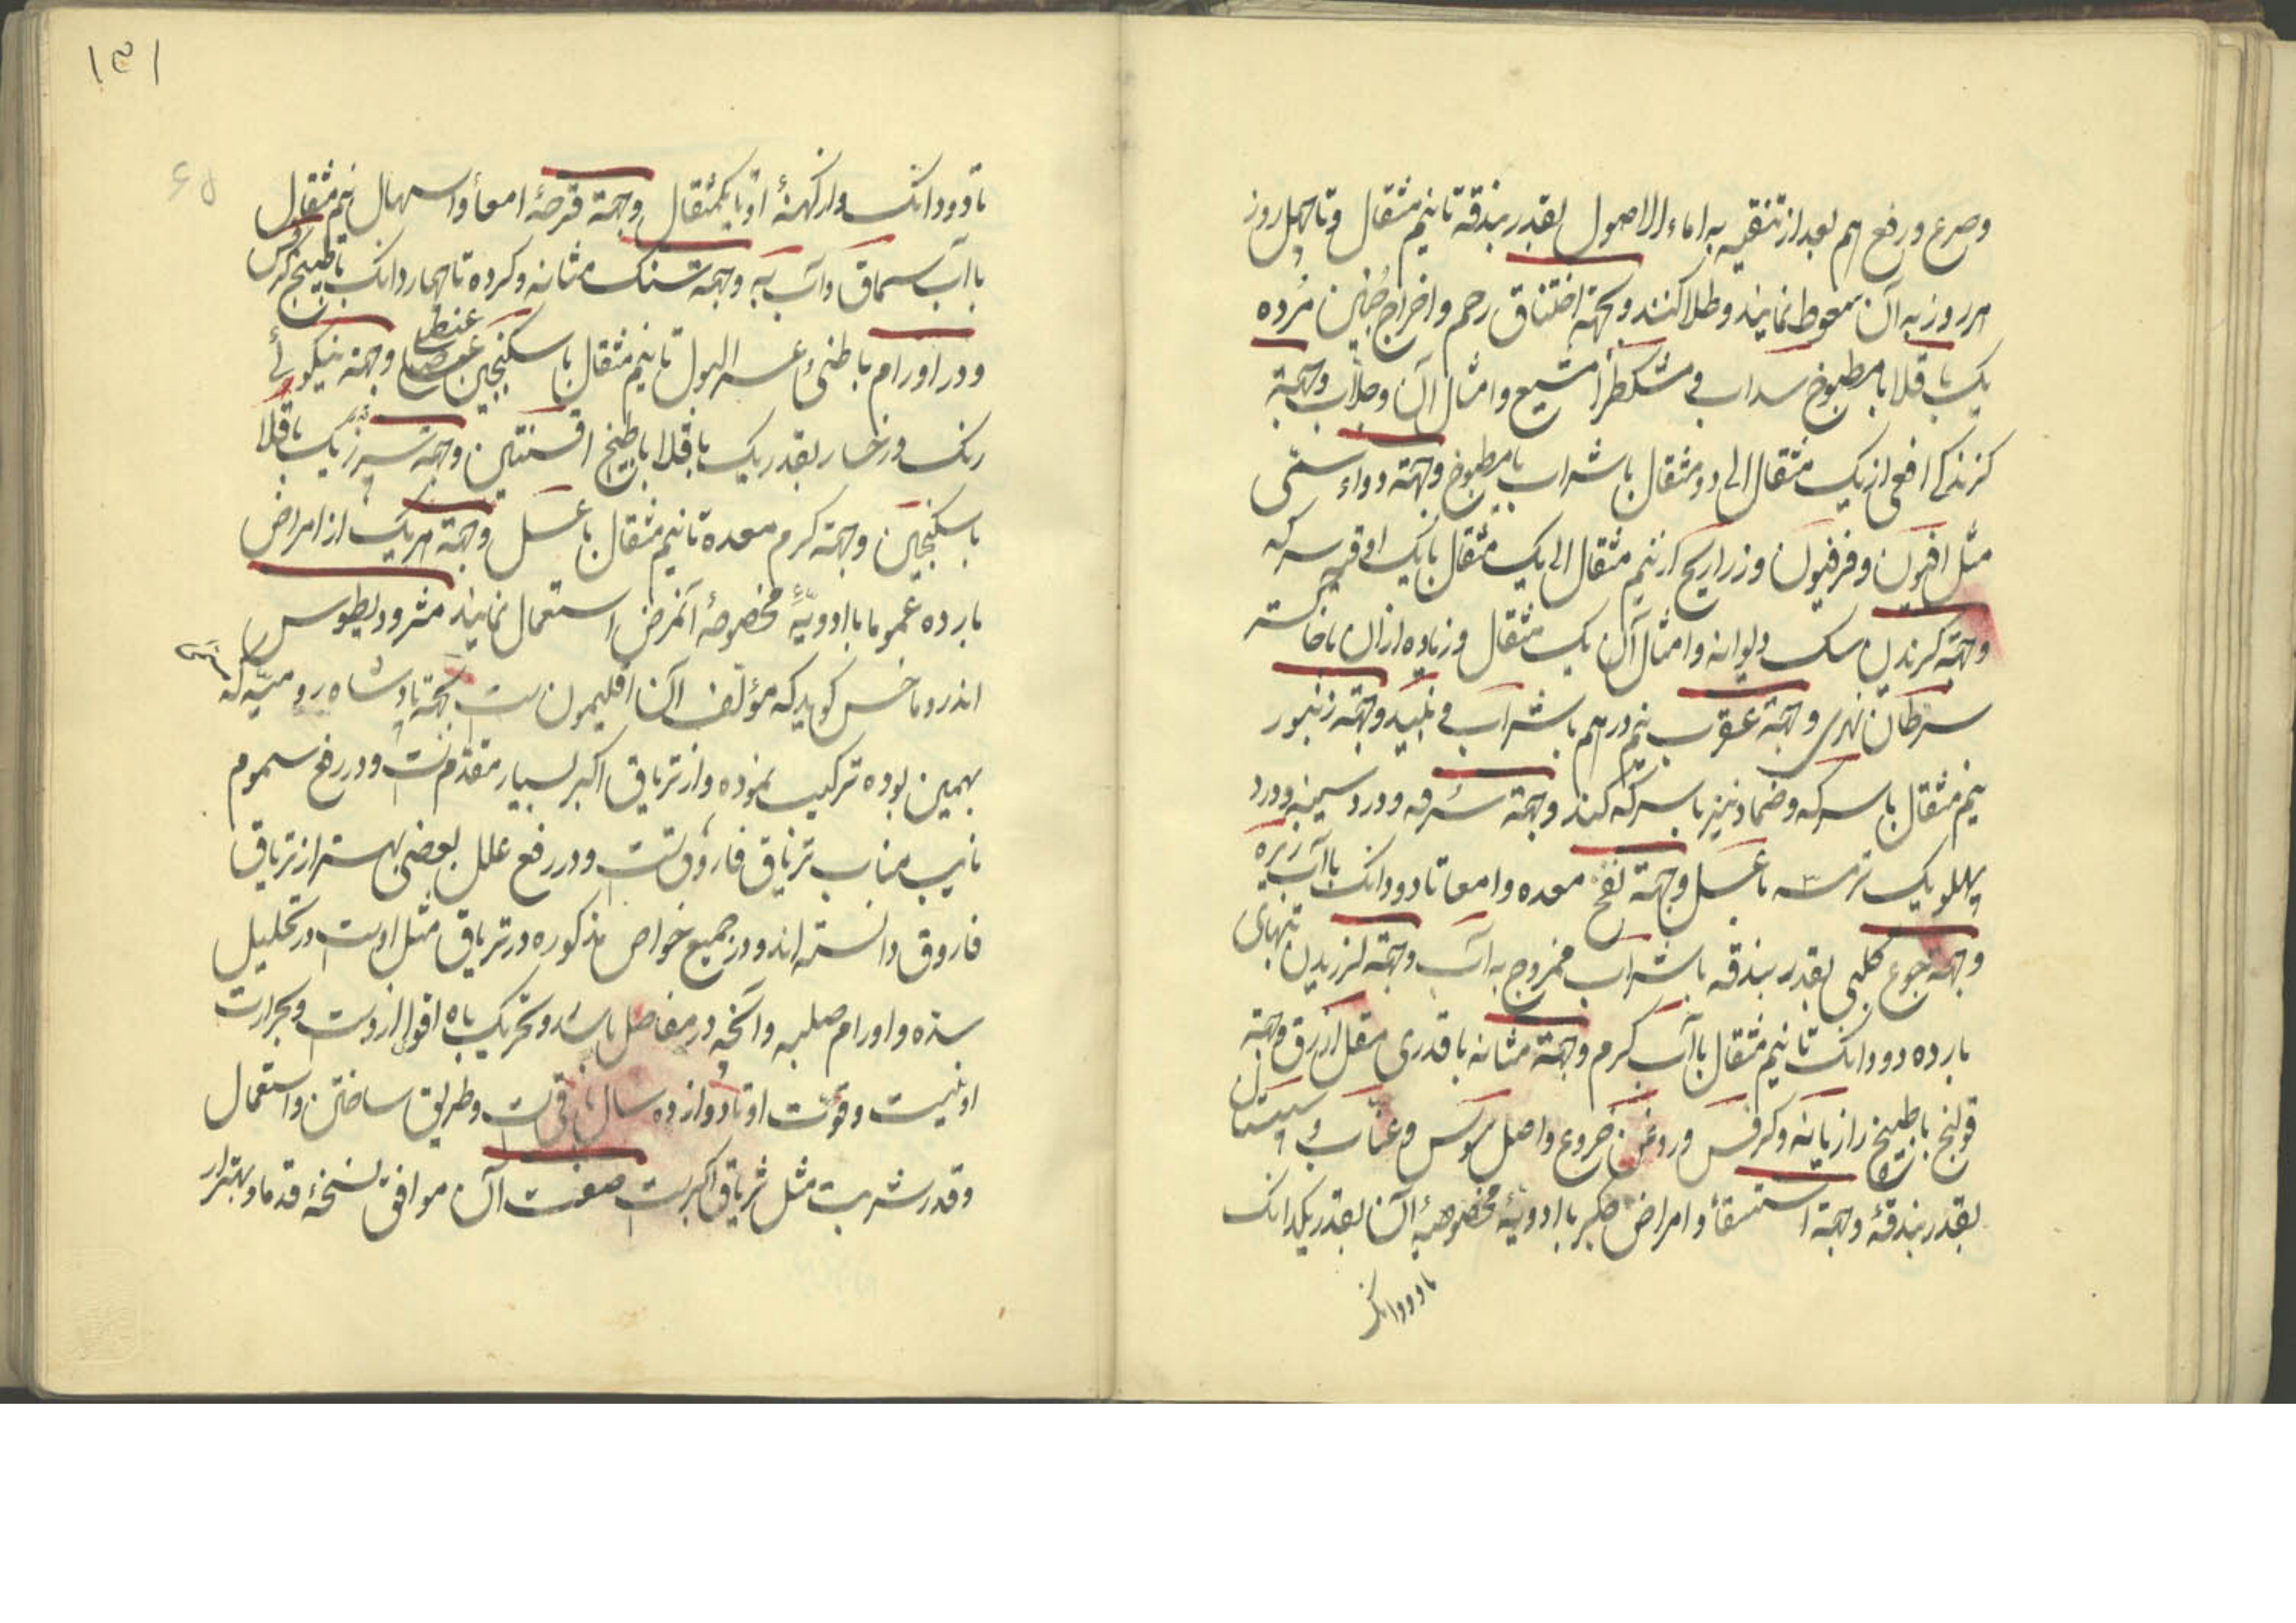 وصرع و رفع هم بعد از تنقیه به اماء الاصول بقدر بندقه تا نیم مثقال و تا چهل روز
هر روز به آن سعوط نمایند و طلا کنند و بجهة اختناق رحم و اخراج جنین مرده
یک باقلا با مطبوخ سداب و مشکطرامشیع و امثال آن و جلاب و جهة
کزندکی افعی از یک مثقال الی دو مثقال با شراب یا مطبوخ و جهة دواء سمّی
مثل افیون و فرفیون و زراریح از نیم مثقال الی یک مثقال با یک اوقیه سرکه
و جهة کزیدن سک دیوانه و امثال آن یک مثقال و زیاده از آن با خاکستر
سرطان نهری و جهة عقرب نیم درهم با شراب و نبید و جهة زنبور
نیم مثقال با سرکه و ضماد نیز با سرکه کنند و جهة سرفه و درد سینه و درد
پهلو یک ترمسه با عسل و جهة نفخ معده و امعا تا دو دانک با آب زیره
و جهة جوع کلبی بقدر بندقه با شراب ممزوج به آب و جهة لرزیدن تبهای
بارده دو دانک تا نیم مثقال با آب کرم و جهة مثانه با قدری مقل ازرق و جهة
قولنج با طبیخ رازیانه و کرفس و روغن خروع و اصل سوس و عناب و سپستان
بقدر بندقهٔ و جهة استسقأ و امراض جکر با ادویهٔ مخصوصهٔ آن بقدر یکدانک
تا دو دانک
۱۳۱
۶۵
تا دو دانک و از کهنهٔ او تا یکمثقال و جهة قرحهٔ امعأ و اسهال نیم مثقال
با آب سماق و آب به و جهة سنک مثانه و کرده تا چهار دانک با طبیخ کرفس
و در اورام باطنی و عسر البول تا نیم مثقال با سکنجبین عنصلی و جهة نیکوئی
رنک و رخسار بقدر یک باقلا با طبیخ افسنتین و جهة سپرز یک باقلا
با سکنجبین و جهة کرم معده تا نیم مثقال با عسل و جهة هر یک از امراض
بارده عموما با ادویهٔ مخصوصهٔ آنمرض استعمال نمایند مثرودیطوس
اندروماخس کوید که مؤلف آن اقلیمون است بجهة پادشاه رومیه که
بهمین بوده ترکیب نموده و از تریاق اکبر بسیار مقدم است و در رفع سموم
نایب مناب تریاق فاروق است و در رفع علل بعضی بهتر از تریاق
فاروق دانسته اند و در جمیع خواص مذکوره در تریاق مثل اوست و در تحلیل
سده و اورام صلبه و آنچه در مفاصل باشد و تحریک باه اقوی از اوست و بحرارت
او نیست و قوت او تا دوازده سال باقی است و طریق ساختن و استعمال
و قدر شربت مثل تریاق اکبر است صفت آن موافق نسخهٔ قدما و بهتر از